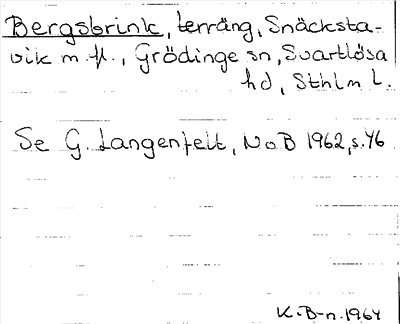 Bergsbrink, terräng, Snäcksta-
vik m.fl., Grödinge sn, Svartlösa
hd, Sthlm l.
Se G. Langenfelt, NoB 1962, s. 46
K.B-n. 1964